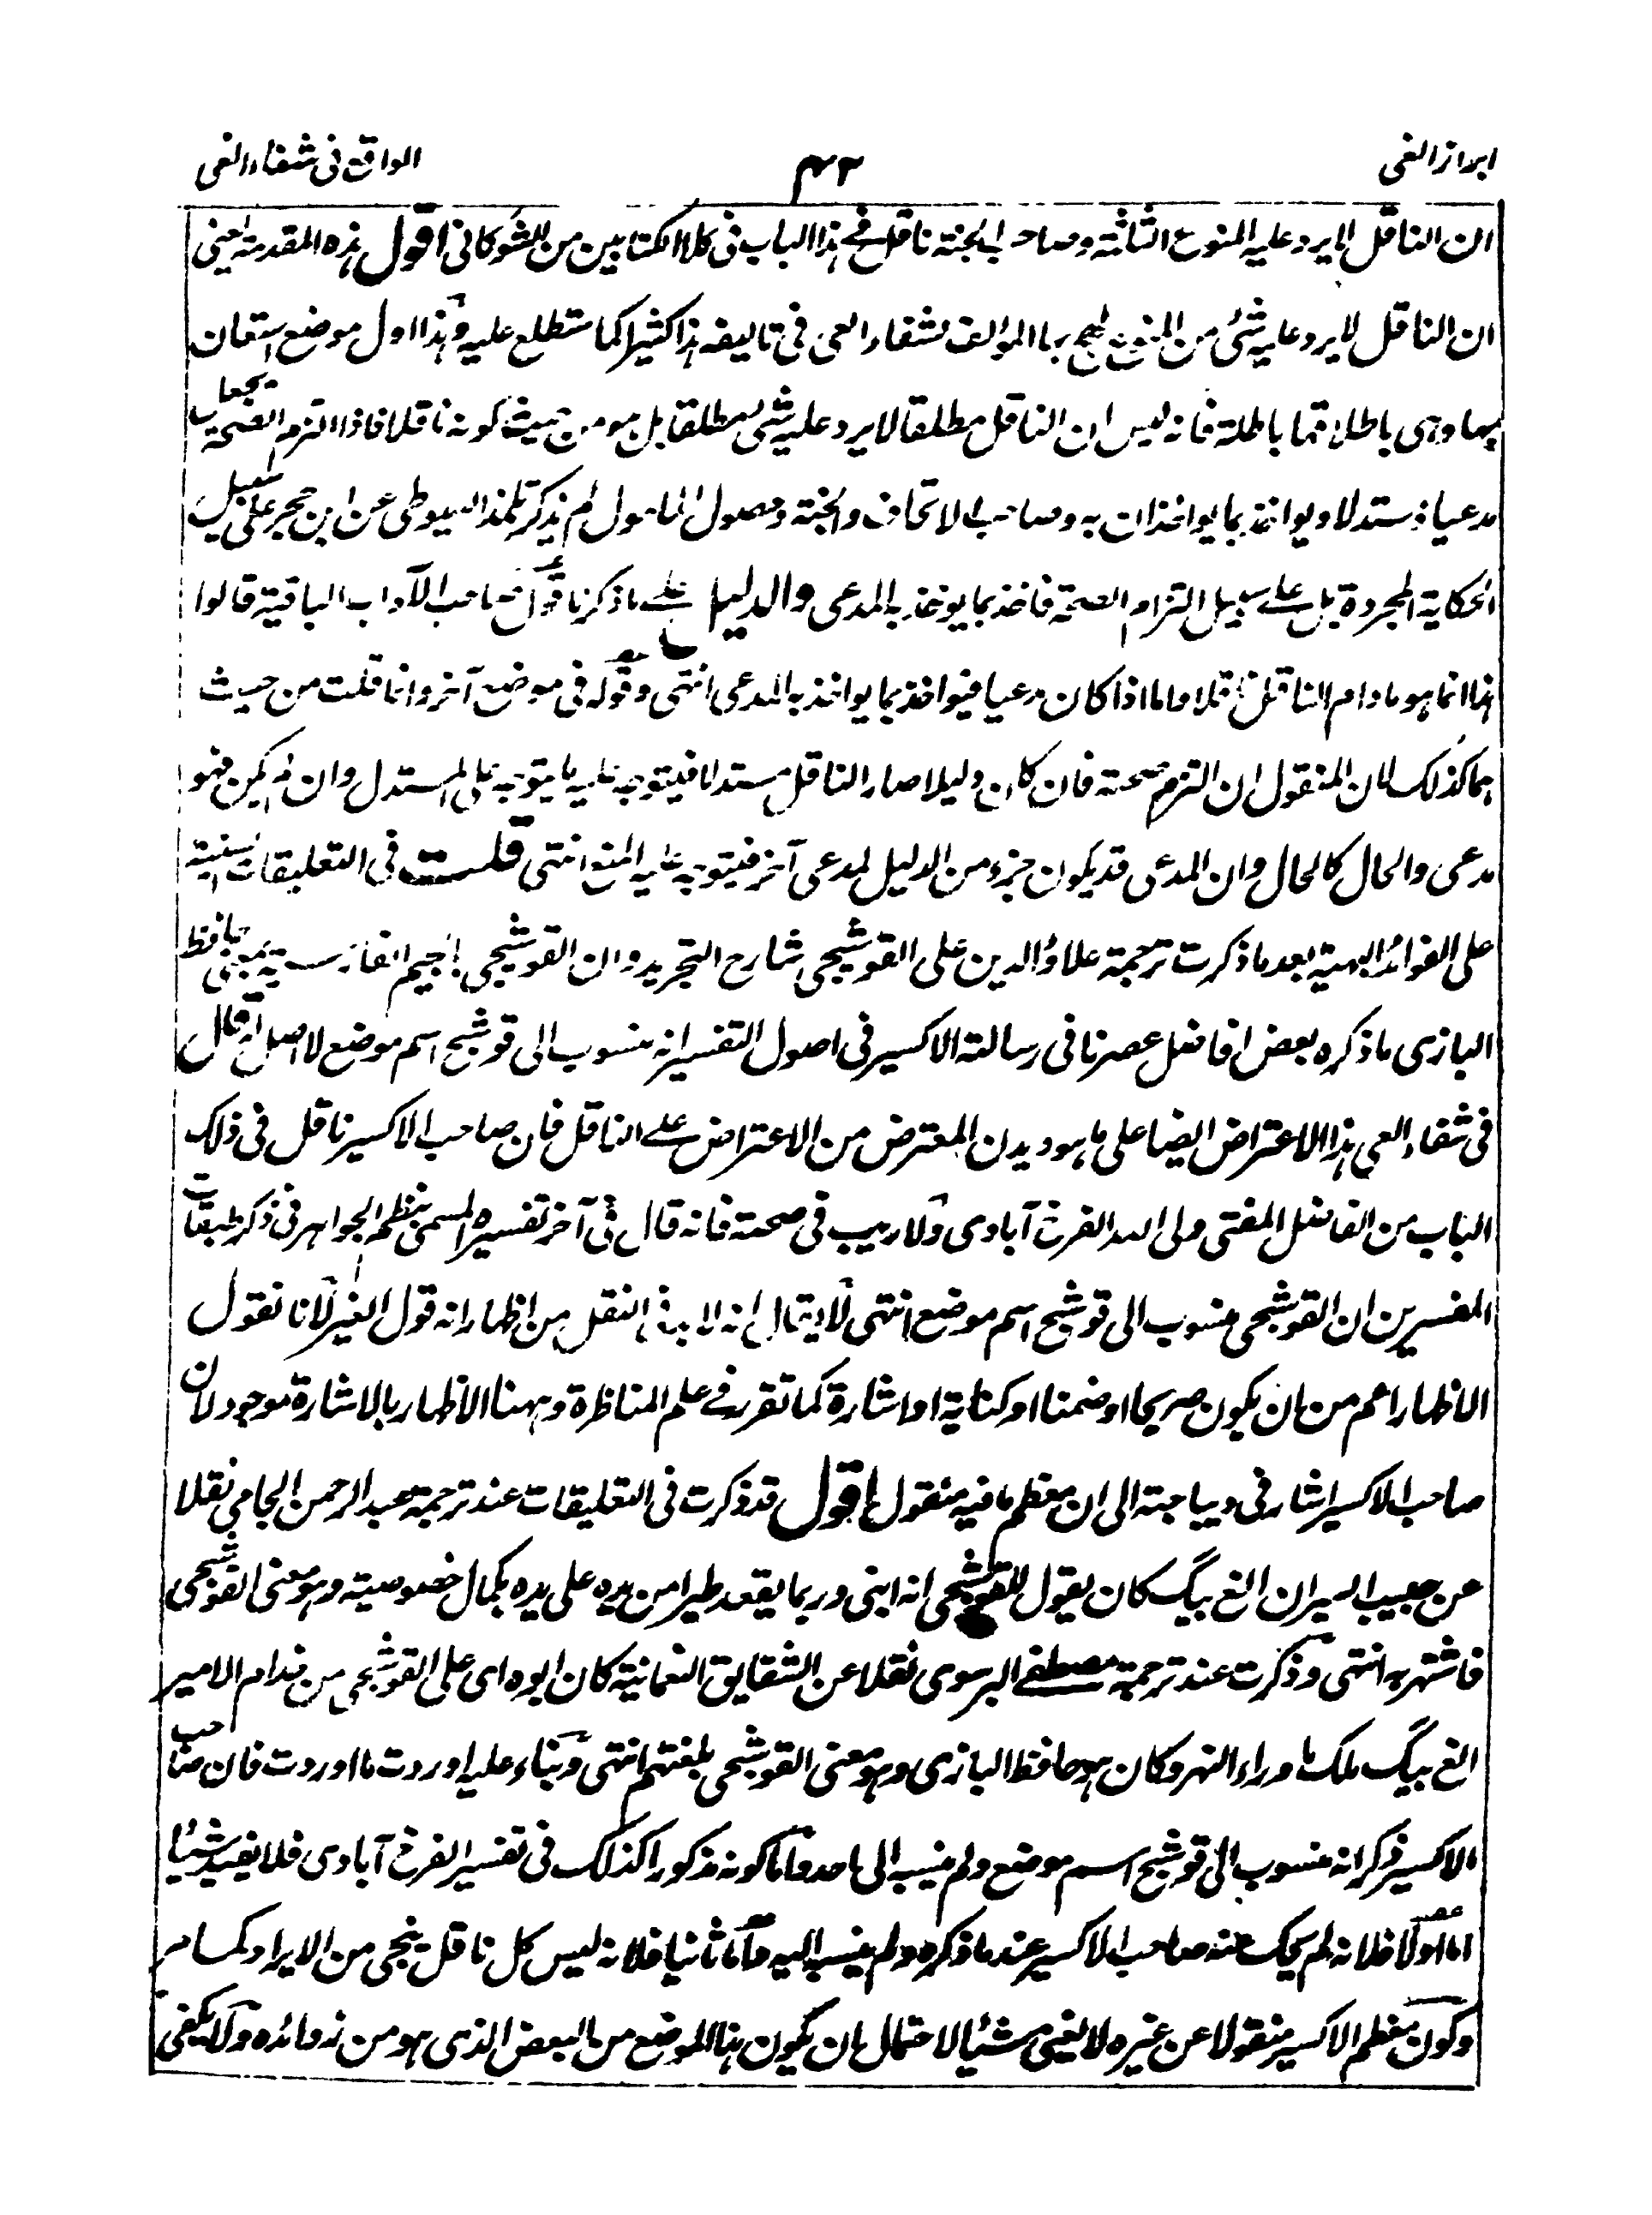 ابراز الغی
٤٢
الواقع فی شفاء العی
ان الناقل لا یرد علیه المنوع الثلثة وصاحب الجنة ناقل فی هذا الباب فی کلا الکتابین من الشوکانی اقول هذه المقدمة اعنی
ان الناقل لا یرد علیه شئ من المنوع لهج بها المؤلف لشفاء العی فی تالیفه هذا کثیرا کما ستطلع علیه وهذا اول موضع استعان
بها وهی باطلاقها باطلة فانه لیس ان الناقل مطلقا لا یرد علیه شئ مطلقا بل هو من حیث کونه ناقلا فاذا التزم الصحة یجعل
مدعیا ومستدلا ویواخذ بما یواخذان به وصاحب الاتحاف والجنة وحصول المامول لم یذکر تلمذ السیوطی عن ابن حجر علی سبیل
الحکایة المجردة بل علی سبیل التزام الصحة فاخذ بما یوخذ به المدعی والدلیل علی ما ذکرنا قول صاحب الآداب الباقیة قالوا
هذا انما هو ما دام الناقل ناقلا واما اذا کان مدعیا فیواخذ بما یواخذ به المدعی انتهی وقوله فی موضع آخر وانا قلت من حیث
هما کذلک لان المنقول ان التزم صحته فان کان دلیلا صار الناقل مستدلا فیتوجه علیه ما یتوجه علی المستدل وان لم یکن فهو
مدعی والحال کالحال وان المدعی قد یکون جزء من الدلیل لمدعی آخر فیتوجه علیه المنع انتهی قلت فی التعلیقات السنیة
علی الفوائد البهیة بعد ما ذکرت ترجمة علاؤ الدین علی القوشیجی شارح التجرید وان القوشیجی بالجیم الفارسیة بمعنی حافظ
البازی ما ذکره بعض افاضل عصرنا فی رسالته الاکسیر فی اصول التفسیر انه منسوب الی قوشیج اسم موضع لا اصل له قال
فی شفاء العی هذا الاعتراض ایضا علی ما هو دیدن المعترض من الاعتراض علی الناقل فان صاحب الاکسیر ناقل فی ذلک
الباب من الفاضل المفتی ولی الله الفرخ آبادی ولا ریب فی صحته فانه قال فی آخر تفسیره المسمی بنظم الجواهر فی ذکر طبقات
المفسرین ان القوشیجی منسوب الی قوشیج اسم موضع انتهی لا یقال انه لا بد فی النقل من اظهار انه قول الغیر لانا نقول
الاظهار اعم من ان یکون صریحا او ضمنا او کنایة او اشارة کما تقرر فی علم المناظرة وههنا الاظهار بالاشارة موجود لان
صاحب الاکسیر اشار فی دیباجته الی ان معظم ما فیه منقول اقول قد ذکرت فی التعلیقات عند ترجمة عبد الرحمن الجامی نقلا
عن حبیب السیر ان الغ بیگ کان یقول للقوشیجی انه ابنی وربما یقعد طیرا من یده علی یده بکمال خصوصیته وهو معنی القوشیجی
فاشتهر به انتهی وذکرت عند ترجمة مصطفی البرسوی نقلا عن الشقایق النعمانیة کان ابوه ای علی القوشیجی من خدام الامیر
الغ بیگ ملک ما وراء النهر وکان هو حافظ البازی وهو معنی القوشیجی بلغتهم انتهی وبناء علیه اوردت ما اوردت فان صاحب
الاکسیر ذکر انه منسوب الی قوشیج اسم موضع ولم ینسبه الی احد واما کونه مذکورا کذلک فی تفسیر الفرخ آبادی فلا یفید شیئا
اما اولا فلانه لم یحک عنه صاحب الاکسیر عند ما ذکره ولم ینسبه الیه واما ثانیا فلانه لیس کل ناقل ینجی من الایراد کما مر
وکون معظم الاکسیر منقولا عن غیره لا یغنی شیئا لاحتمال ان یکون هذا الموضع من البعض الذی هو من زوائده ولا یکفی